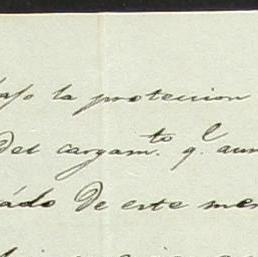 bajo la proteccion
del cargam.to q.l aun
de este mes